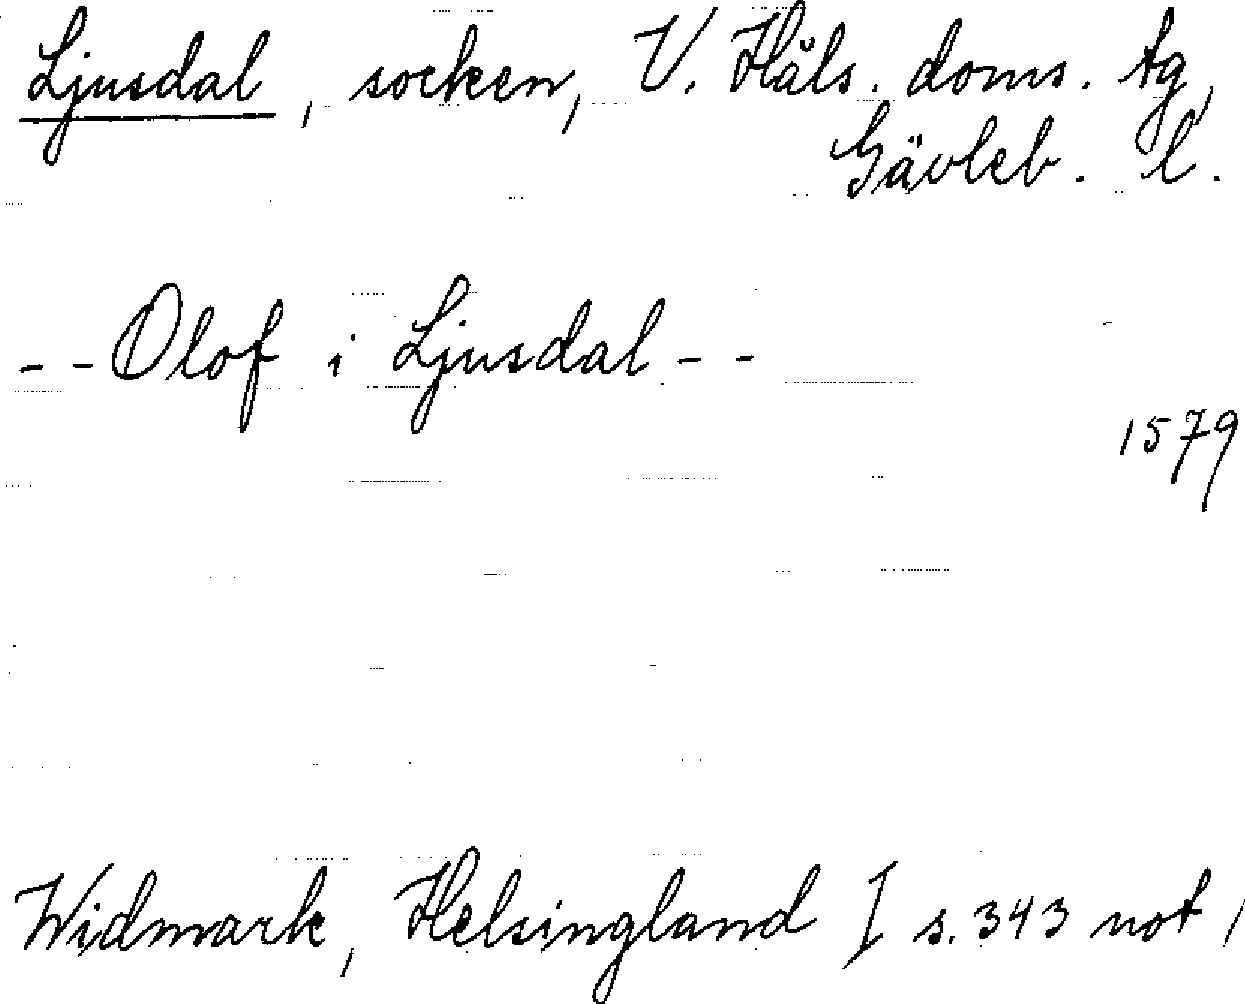 Ljusdal, socken, V. Häls. doms. tg,
Gävleb. l.
-- Olof i Ljusdal --
1579
Widmark, Helsingland I s. 343 not 1